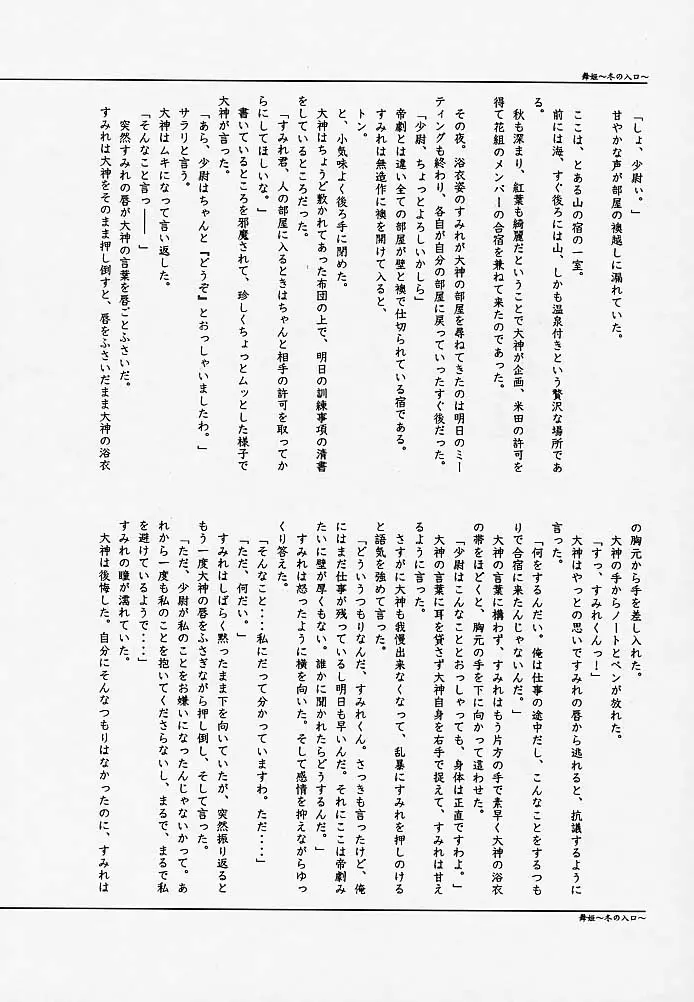 舞姫～冬の入口～
「しょ、少尉ぃ。」
甘やかな声が部屋の襖越しに漏れていた。
ここは、とある山の宿の一室。
前には海、すぐ後ろには山、しかも温泉付きという贅沢な場所であ
る。
秋も深まり、紅葉も綺麗だということで大神が企画、米田の許可を
得て花組のメンバーの合宿を兼ねて来たのであった。
その夜。浴衣姿のすみれが大神の部屋を尋ねてきたのは明日のミー
ティングも終わり、各自が自分の部屋に戻っていったすぐ後だった。
「少尉、ちょっとよろしいかしら」
帝劇とは違い全ての部屋が壁と襖で仕切られている宿である。
すみれは無造作に襖を開けて入ると、
トン。
と、小気味よく後ろ手に閉めた。
大神はちょうど敷かれてあった布団の上で、明日の訓練事項の清書
をしているところだった。
「すみれ君、人の部屋に入るときはちゃんと相手の許可を取ってか
らにしてほしいな。」
書いているところを邪魔されて、珍しくちょっとムッとした様子で
大神が言った。
「あら、少尉はちゃんと『どうぞ』とおっしゃいましたわ。」
サラリと言う。
大神はムキになって言い返した。
「そんなこと言っ――」
突然すみれの唇が大神の言葉を唇ごとふさいだ。
すみれは大神をそのまま押し倒すと、唇をふさいだまま大神の浴衣
の胸元から手を差し入れた。
大神の手からノートとペンが放れた。
「すっ、すみれくんっ！」
大神はやっとの思いですみれの唇から逃れると、抗議するように
言った。
「何をするんだい。俺は仕事の途中だし、こんなことをするつも
りで合宿に来たんじゃないんだ。」
大神の言葉に構わず、すみれはもう片方の手で素早く大神の浴衣
の帯をほどくと、胸元の手を下に向かって這わせた。
「少尉はこんなこととおっしゃっても、身体は正直ですわよ。」
大神の言葉に耳を貸さず大神自身を右手で捉えて、すみれは甘え
るように言った。
さすがに大神も我慢出来なくなって、乱暴にすみれを押しのける
と語気を強めて言った。
「どういうつもりなんだ、すみれくん。さっきも言ったけど、俺
にはまだ仕事が残っているし明日も早いんだ。それにここは帝劇み
たいに壁が厚くもない。誰かに聞かれたらどうするんだ。」
すみれは怒ったように横を向いた。そして感情を抑えながらゆっ
くり答えた。
「そんなこと・・・・私にだって分かっていますわ。ただ・・・・」
「ただ、何だい。」
すみれはしばらく黙ったまま下を向いていたが、突然振り返ると
もう一度大神の唇をふさぎながら押し倒し、そして言った。
「ただ、少尉が私のことをお嫌いになったんじゃないかって。あ
れから一度も私のことを抱いてくださらないし、まるで、まるで私
を避けているようで・・・」
すみれの瞳が濡れていた。
大神は後悔した。自分にそんなつもりはなかったのに、すみれは
舞姫～冬の入口～